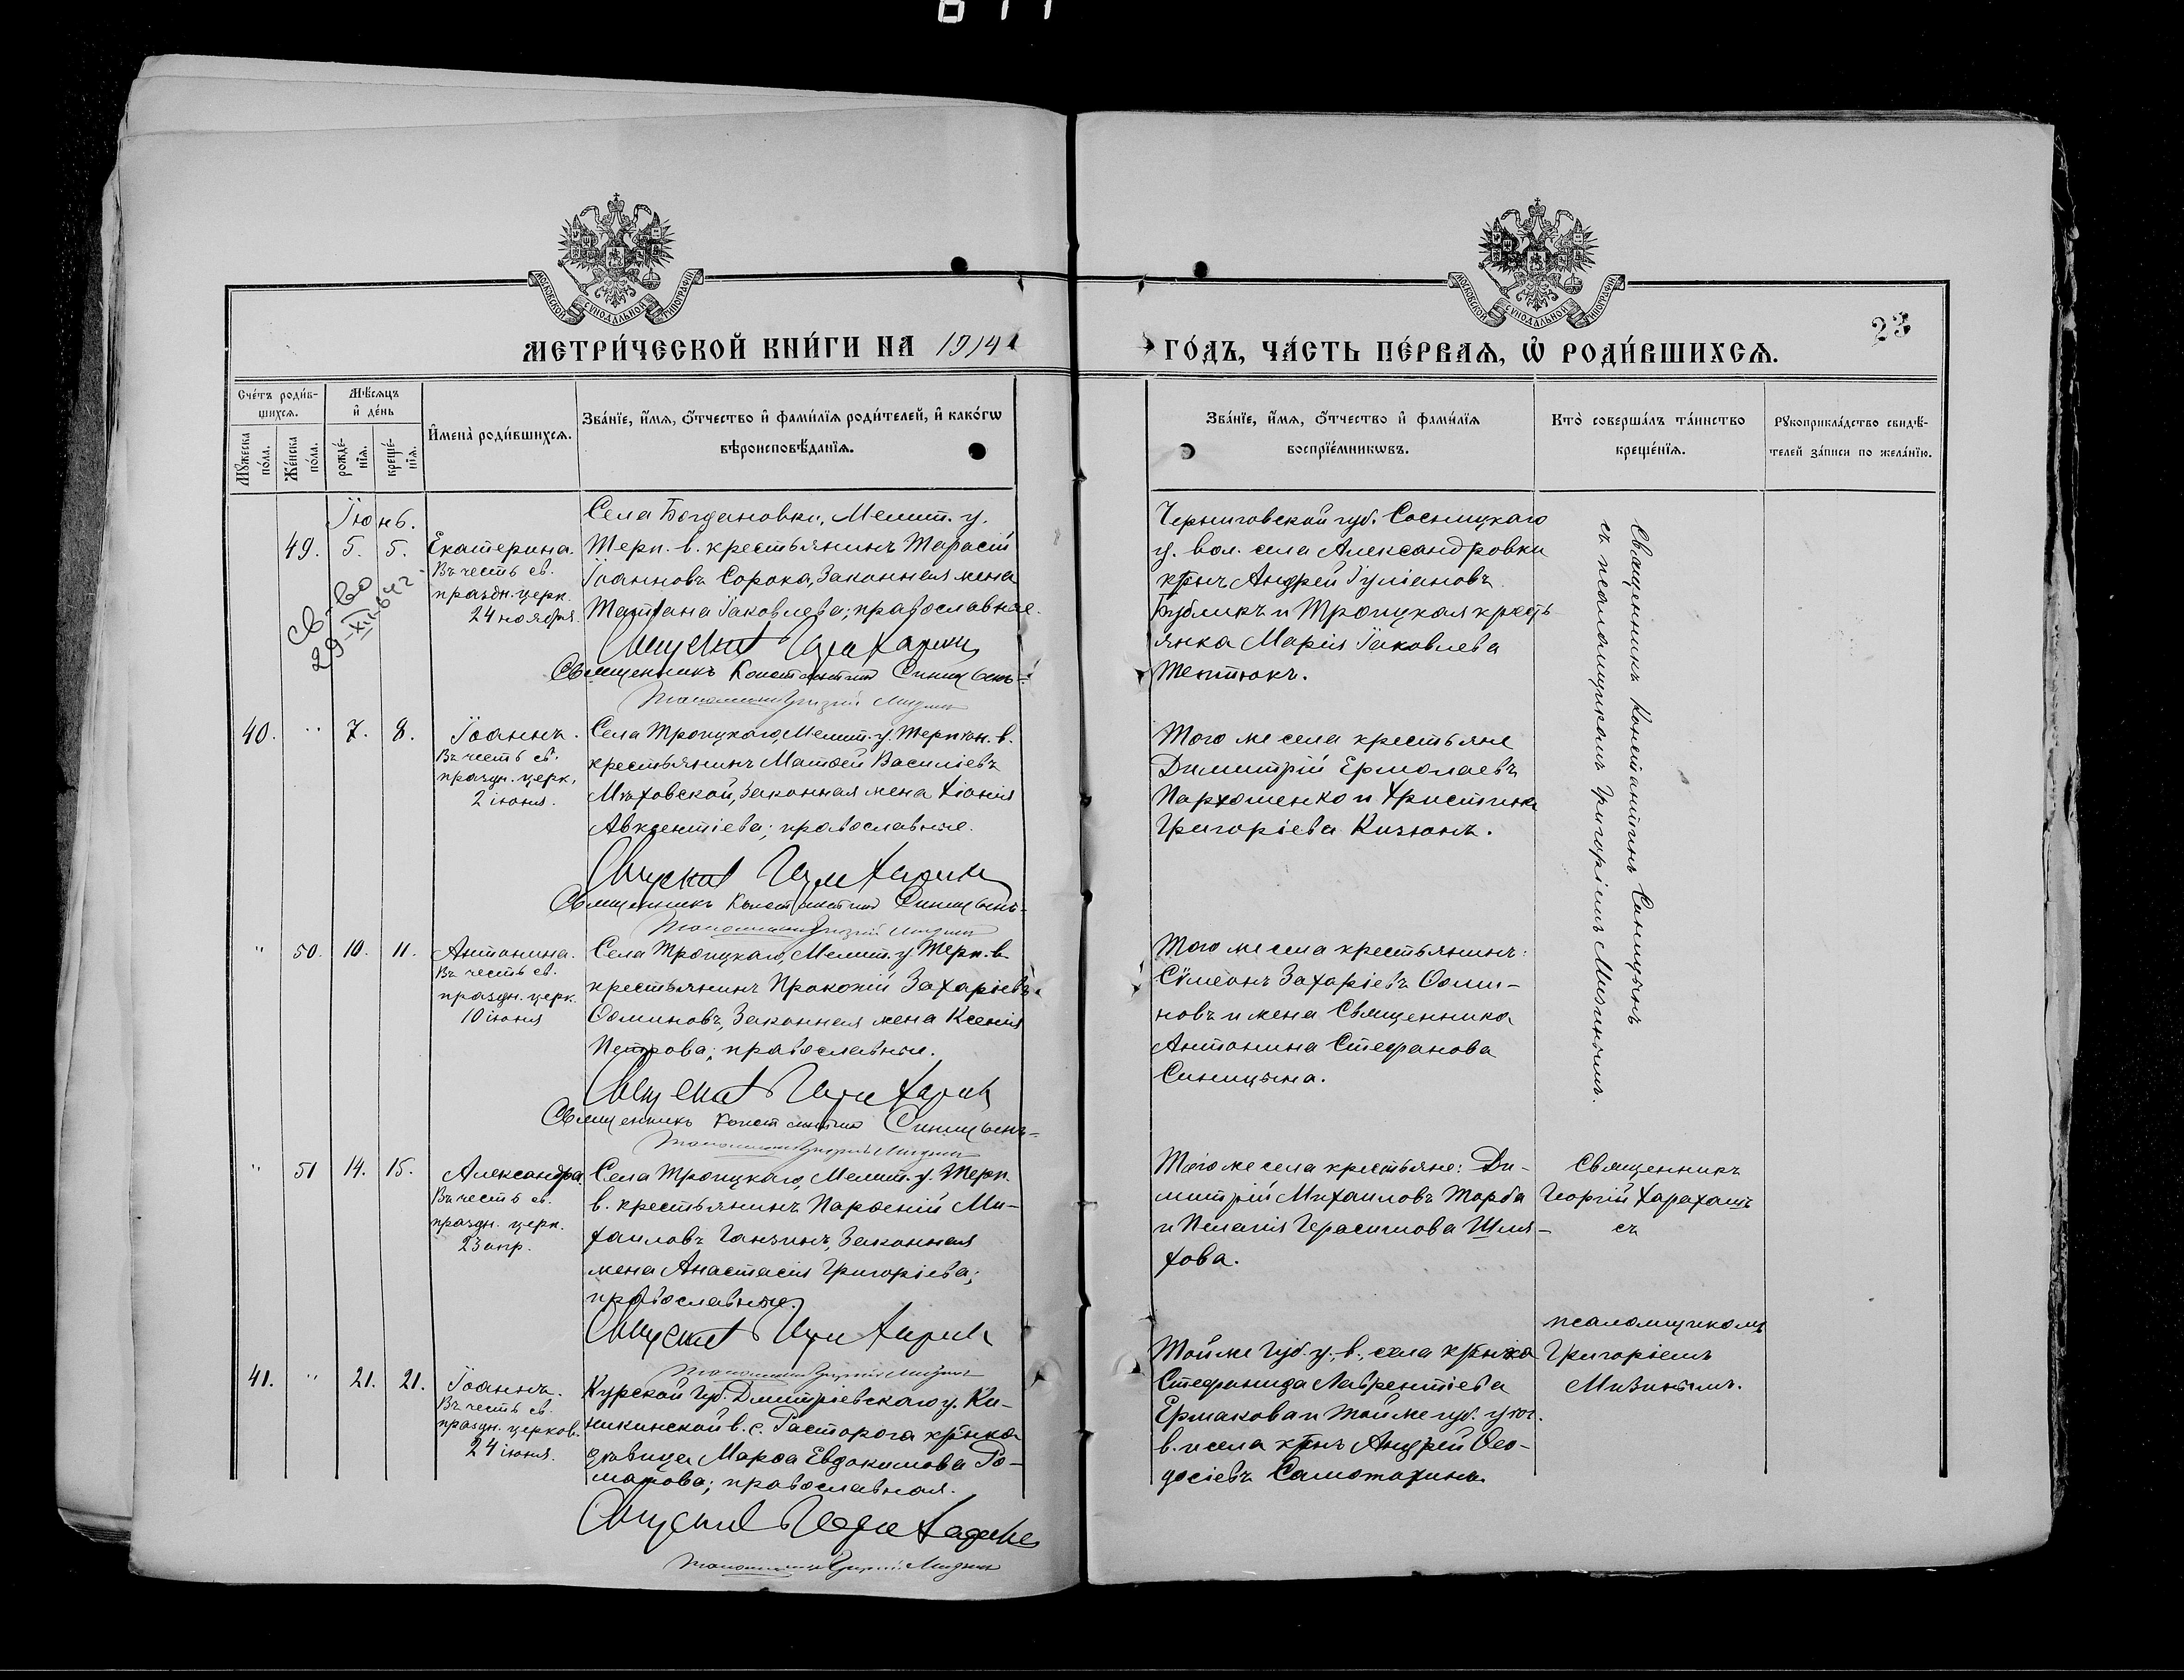 МЕТРИ́ЧЕСКОЙ КНИ́ГИ НА 1914
ГО́ДЪ, ЧА́СТЬ ПЕ́РВАѦ, Ѡ҆ РОДИ́ВШИХСѦ.
23
Сче́тъ роди́в-
шихсѧ.
Мѣ́сѧцъ
и҆ де́нь
Мꙋ́жеска
по́ла.
Же́нска
по́ла.
рожде́-
нїѧ.
креще́-
нїѧ.
И҆мена̀ роди́вшихсѧ.
Зва́нїе, и҆́мѧ, ѻ҆́тчество и҆ фами́лїѧ роди́телей, и҆ како́гѡ
вѣроисповѣ́данїѧ.
Зва́нїе, и҆́мѧ, ѻ҆́тчество и҆ фами́лїѧ
воспрїе́мникѡвъ.
Кто̀ соверша́лъ та́инство
креще́нїѧ.
Рꙋкоприкла́дство свидѣ́-
телей за́писи по жела́нїю.
Іюнь.
49. 5. 5.
Екатерина.
Въ честь св.
праздн. церк.
24 ноября.
Св-во
29-XII-642-
Села Богдановки, Мелит. у.
Терп. в. крестьянинъ Тарасій
Іоанновъ Сорока, законная жена
Татіана Іаковлева; православные.
Священникъ Константинъ Синицынъ
Псаломщикъ Григорій Мизинъ
Черниговской губ. Сосницкаго
у. вол. села Александровки
кр-нъ Андрей Іуліановъ
Бубликъ и Троицкая кресть
янка Марія Іаковлева
Тентюкъ.
Священникъ Константинъ Синицынъ
съ псаломщикомъ Григоріемъ Мизинымъ.
40. " 7. 8.
Іоаннъ.
Въ честь св.
праздн. церк.
2 іюня.
Села Троицкаго, Мелит. у. Терпѣн. в.
крестьянинъ Матѳей Василіевъ
Мѣховской, законная жена Хіонія
Авксентіева; православные.
Священникъ Константинъ Синицынъ
Псаломщикъ Григорій Мизинъ
Того же села крестьяне
Димитрій Ермолаевъ
Пархоменко и Христина
Григоріева Кизюнъ.
" 50. 10. 11.
Антонина.
Въ честь св.
праздн. церк.
10 іюня
Села Троицкаго, Мелит. у. Терп. в.
крестьянинъ Прокопій Захаріевъ
Ѳоминовъ, законная жена Ксенія
Петрова; православные.
Священникъ Константинъ Синицынъ
Псаломщикъ Григорій Мизинъ
Того же села крестьянинъ:
Сѵмеонъ Захаріевъ Ѳоми-
новъ и жена Священника
Антонина Стефанова
Синицына.
" 51 14. 15.
Александра
Въ честь св.
праздн. церк.
23 апр.
Села Троицкаго, Мелит. у. Терп.
в. крестьянинъ Парѳеній Ми-
хаиловъ Ганзинъ, законная
жена Анастасія Григоріева;
православные.
Псаломщикъ Григорій Мизинъ
Того же села крестьяне: Ди-
митрій Михаиловъ Торба
и Пелагія Герасимова Шля-
хова.
Священникъ
Георгій Харахашъ
съ
псаломщикомъ
Григоріемъ
Мизинымъ.
41. " 21. 21.
Іоаннъ.
Въ честь св.
праздн. церков.
24 іюня.
Курской губ. Дмитріевскаго у. Ки-
ликинской в. с. Расторога кр-нка
дѣвица Марѳа Евдокимова Ро-
матова; православная.
Псаломщикъ Григорій Мизинъ
Той же губ. у., в., села кр-нка
Стефанида Лаврентіева
Ермакова и той же губ. у.
в. и села кр-нъ Андрей Ѳео-
досіевъ Самотахинъ.